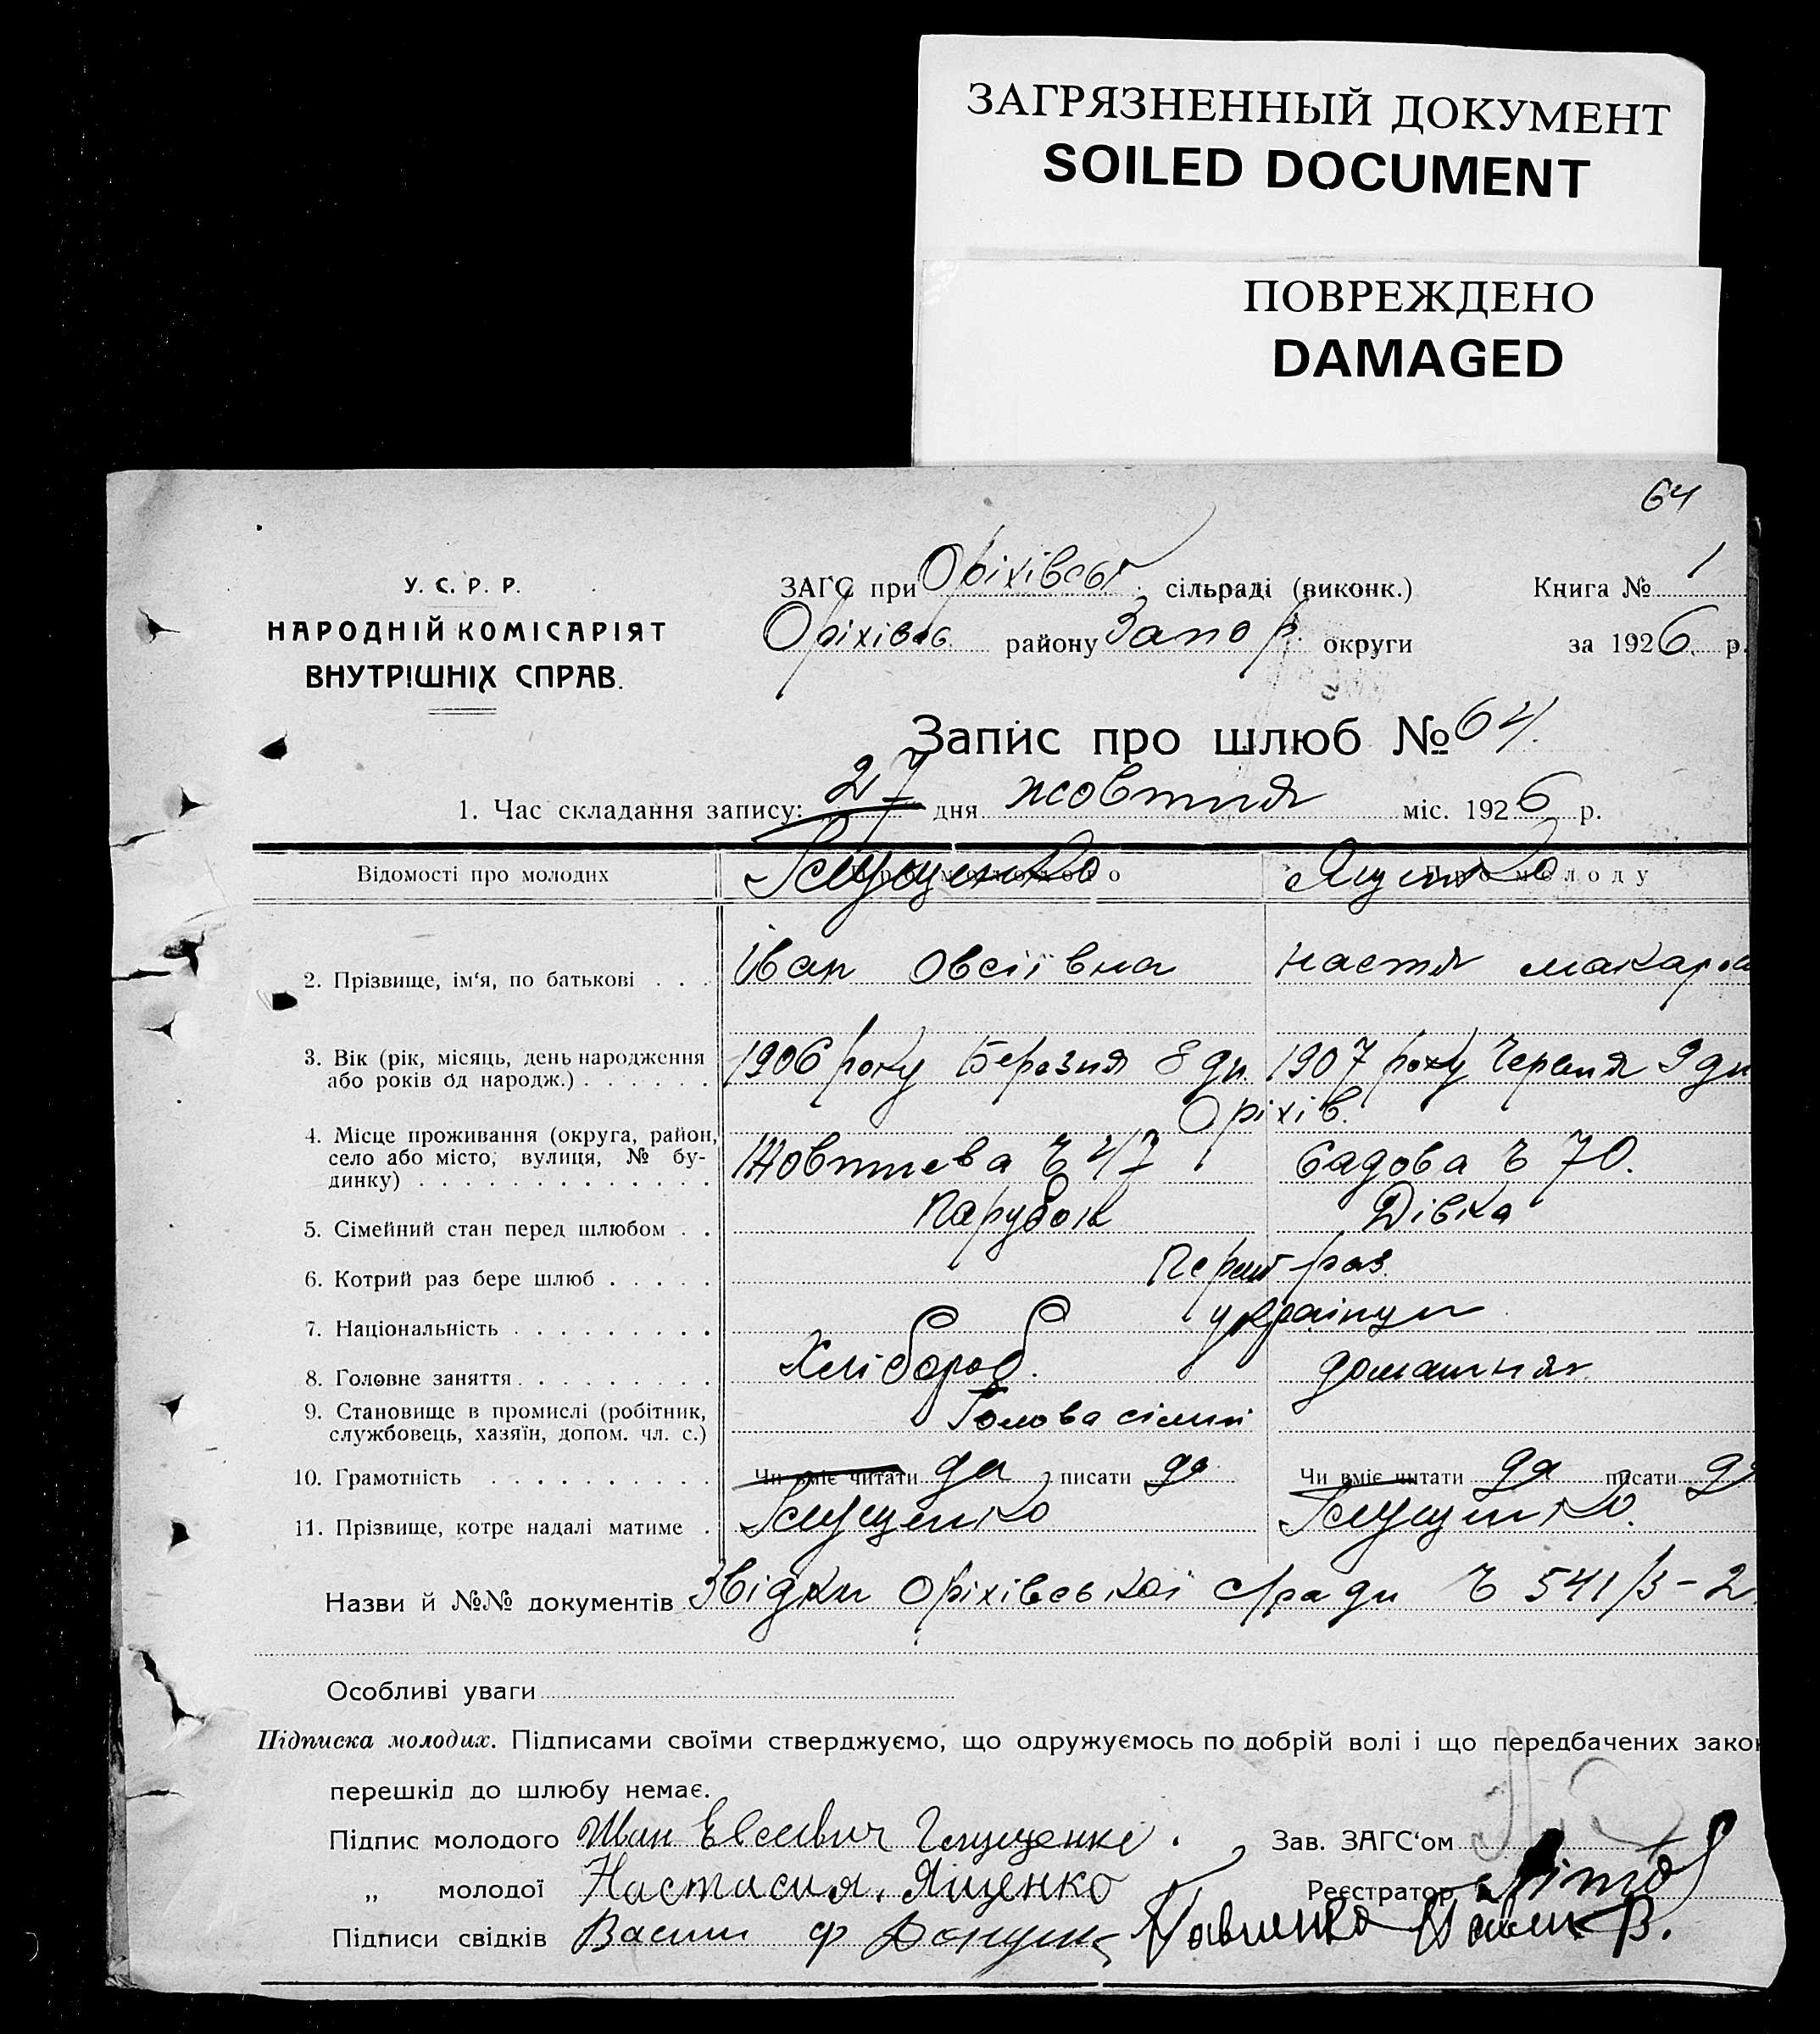 ЗАГРЯЗНЕННЫЙ ДОКУМЕНТ
SOILED DOCUMENT
ПОВРЕЖДЕНО
DAMAGED
64
У. С. Р. Р.
НАРОДНІЙ КОМІСАРІЯТ
ВНУТРІШНІХ СПРАВ.
ЗАГС при Оріхівськ сільраді (виконк.) Книга № 1
Оріхівс. району Запор. округи за 1926 р.
Запис про шлюб № 64.
1. Час складання запису: 27 дня жовтня міс. 1926 р.
Відомості про молодих Про молодого Про молоду
Ященко
2. Прізвище, ім'я, по батькові . . . Іван Овсіївна Настя Макаров
3. Вік (рік, місяць, день народження 1906 року Березня 8 дн. 1907 року Червня 9 дн
або років од народж.) . . . . . .
Оріхів.
4. Місце проживання (округа, район, Жовтнева Ч 47 Садова Ч 70.
село або місто, вулиця, № бу-
динку) . . . . . . . . . . . . .
5. Сімейний стан перед шлюбом . . Парубок Дівка
6. Котрий раз бере шлюб . . . . . Перший раз.
7. Національність . . . . . . . . . українци
8. Головне заняття . . . . . . . . . Хлібороб. домашняя
9. Становище в промислі (робітник, Голова сімьї
службовець, хазяїн, допом. чл. с.)
10. Грамотність . . . . . . . . . . Чи вміє читати да писати да Чи вміє читати да писати да
11. Прізвище, котре надалі матиме .
Назви й №№ документів Звідки Оріхівської с/ради Ч 541/3-2
Особливі уваги
Підписка молодих. Підписами своїми стверджуємо, що одружуємось по добрій волі і що передбачених закон
перешкід до шлюбу немає.
Підпис молодого Иван Евсевич Зав. ЗАГС'ом
„ молодої Настасия. Ященко Реєстратор
Підписи свідків Васили Ф Павленко